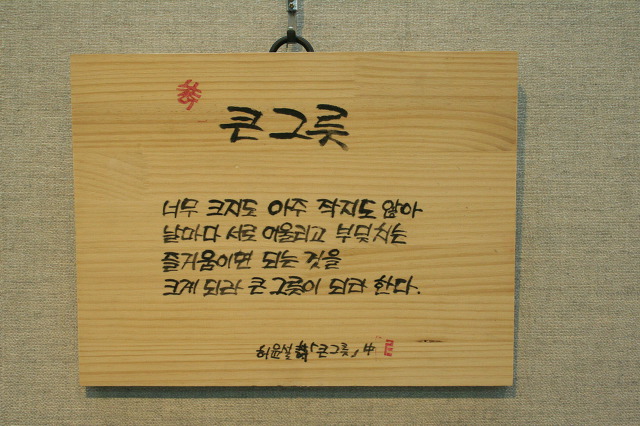 큰그릇
너무 크지도 아주 작지도 않아
날마다 서로 어울리고 부딪치는
즐거움이면 되는 것을
크게 되라 큰 그릇이 되라 한다.
큰그릇 中